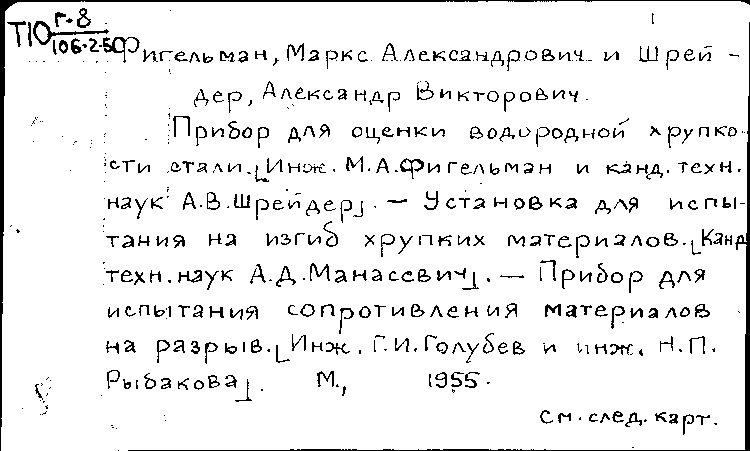 Т10 г-8
106-2-50
1
Фигельман, Маркс Александрович и Шрей-
дер, Александр Викторович.
Прибор для оценки водородной хрупко-
сти стали. [Инж. М.А.Фигельман и канд. техн.
наук А.В.Шрейдер]. — Установка для испы-
тания на изгиб хрупких материалов. [Канд
техн. наук А.Д.Манасевич]. — Прибор для
испытания сопротивления материалов
на разрыв. [Инж. Г.И.Голубев и инж. Н.П.
Рыбакова]. М., 1955.
См. след. карт.